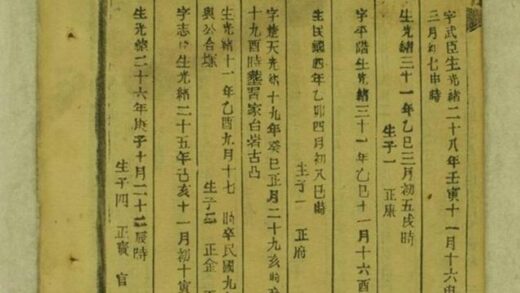 字武臣生光緒二十八年壬寅十一月十六申
三月初七申時
生光緒三十一年乙巳三月初五戌時
生子一 正康
字平階生光緒三十一年乙巳十一月十六酉
生民國四年乙卯四月初八巳時
生子一 正府
字楚天光緒十九年癸巳正月二十九亥時
十九酉時塟習家台岩古凸
生光緒十一年乙酉九月十七 時卒民國九
與公合塚 生子二 正金 正
字志 生光緒二十五年己亥十一月初十寅
生光緒二十六年庚子十月二十二辰時
生子四 正寶 官